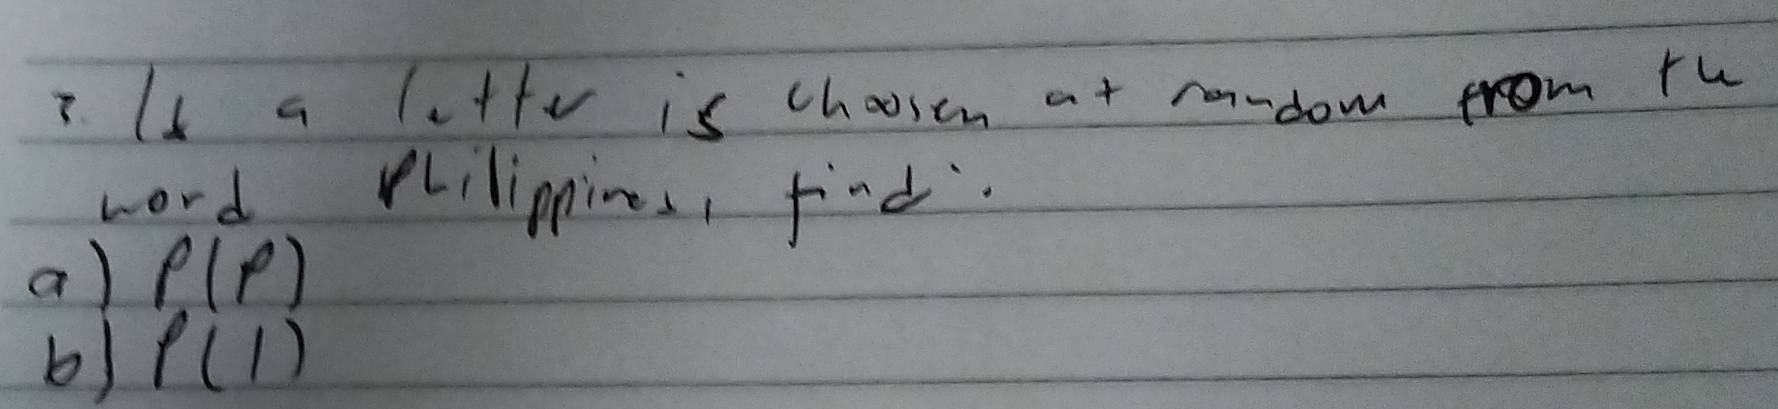 2. If a letter is choosen at random from the
word Philippines, find:
a) P(P)
b) P(I)